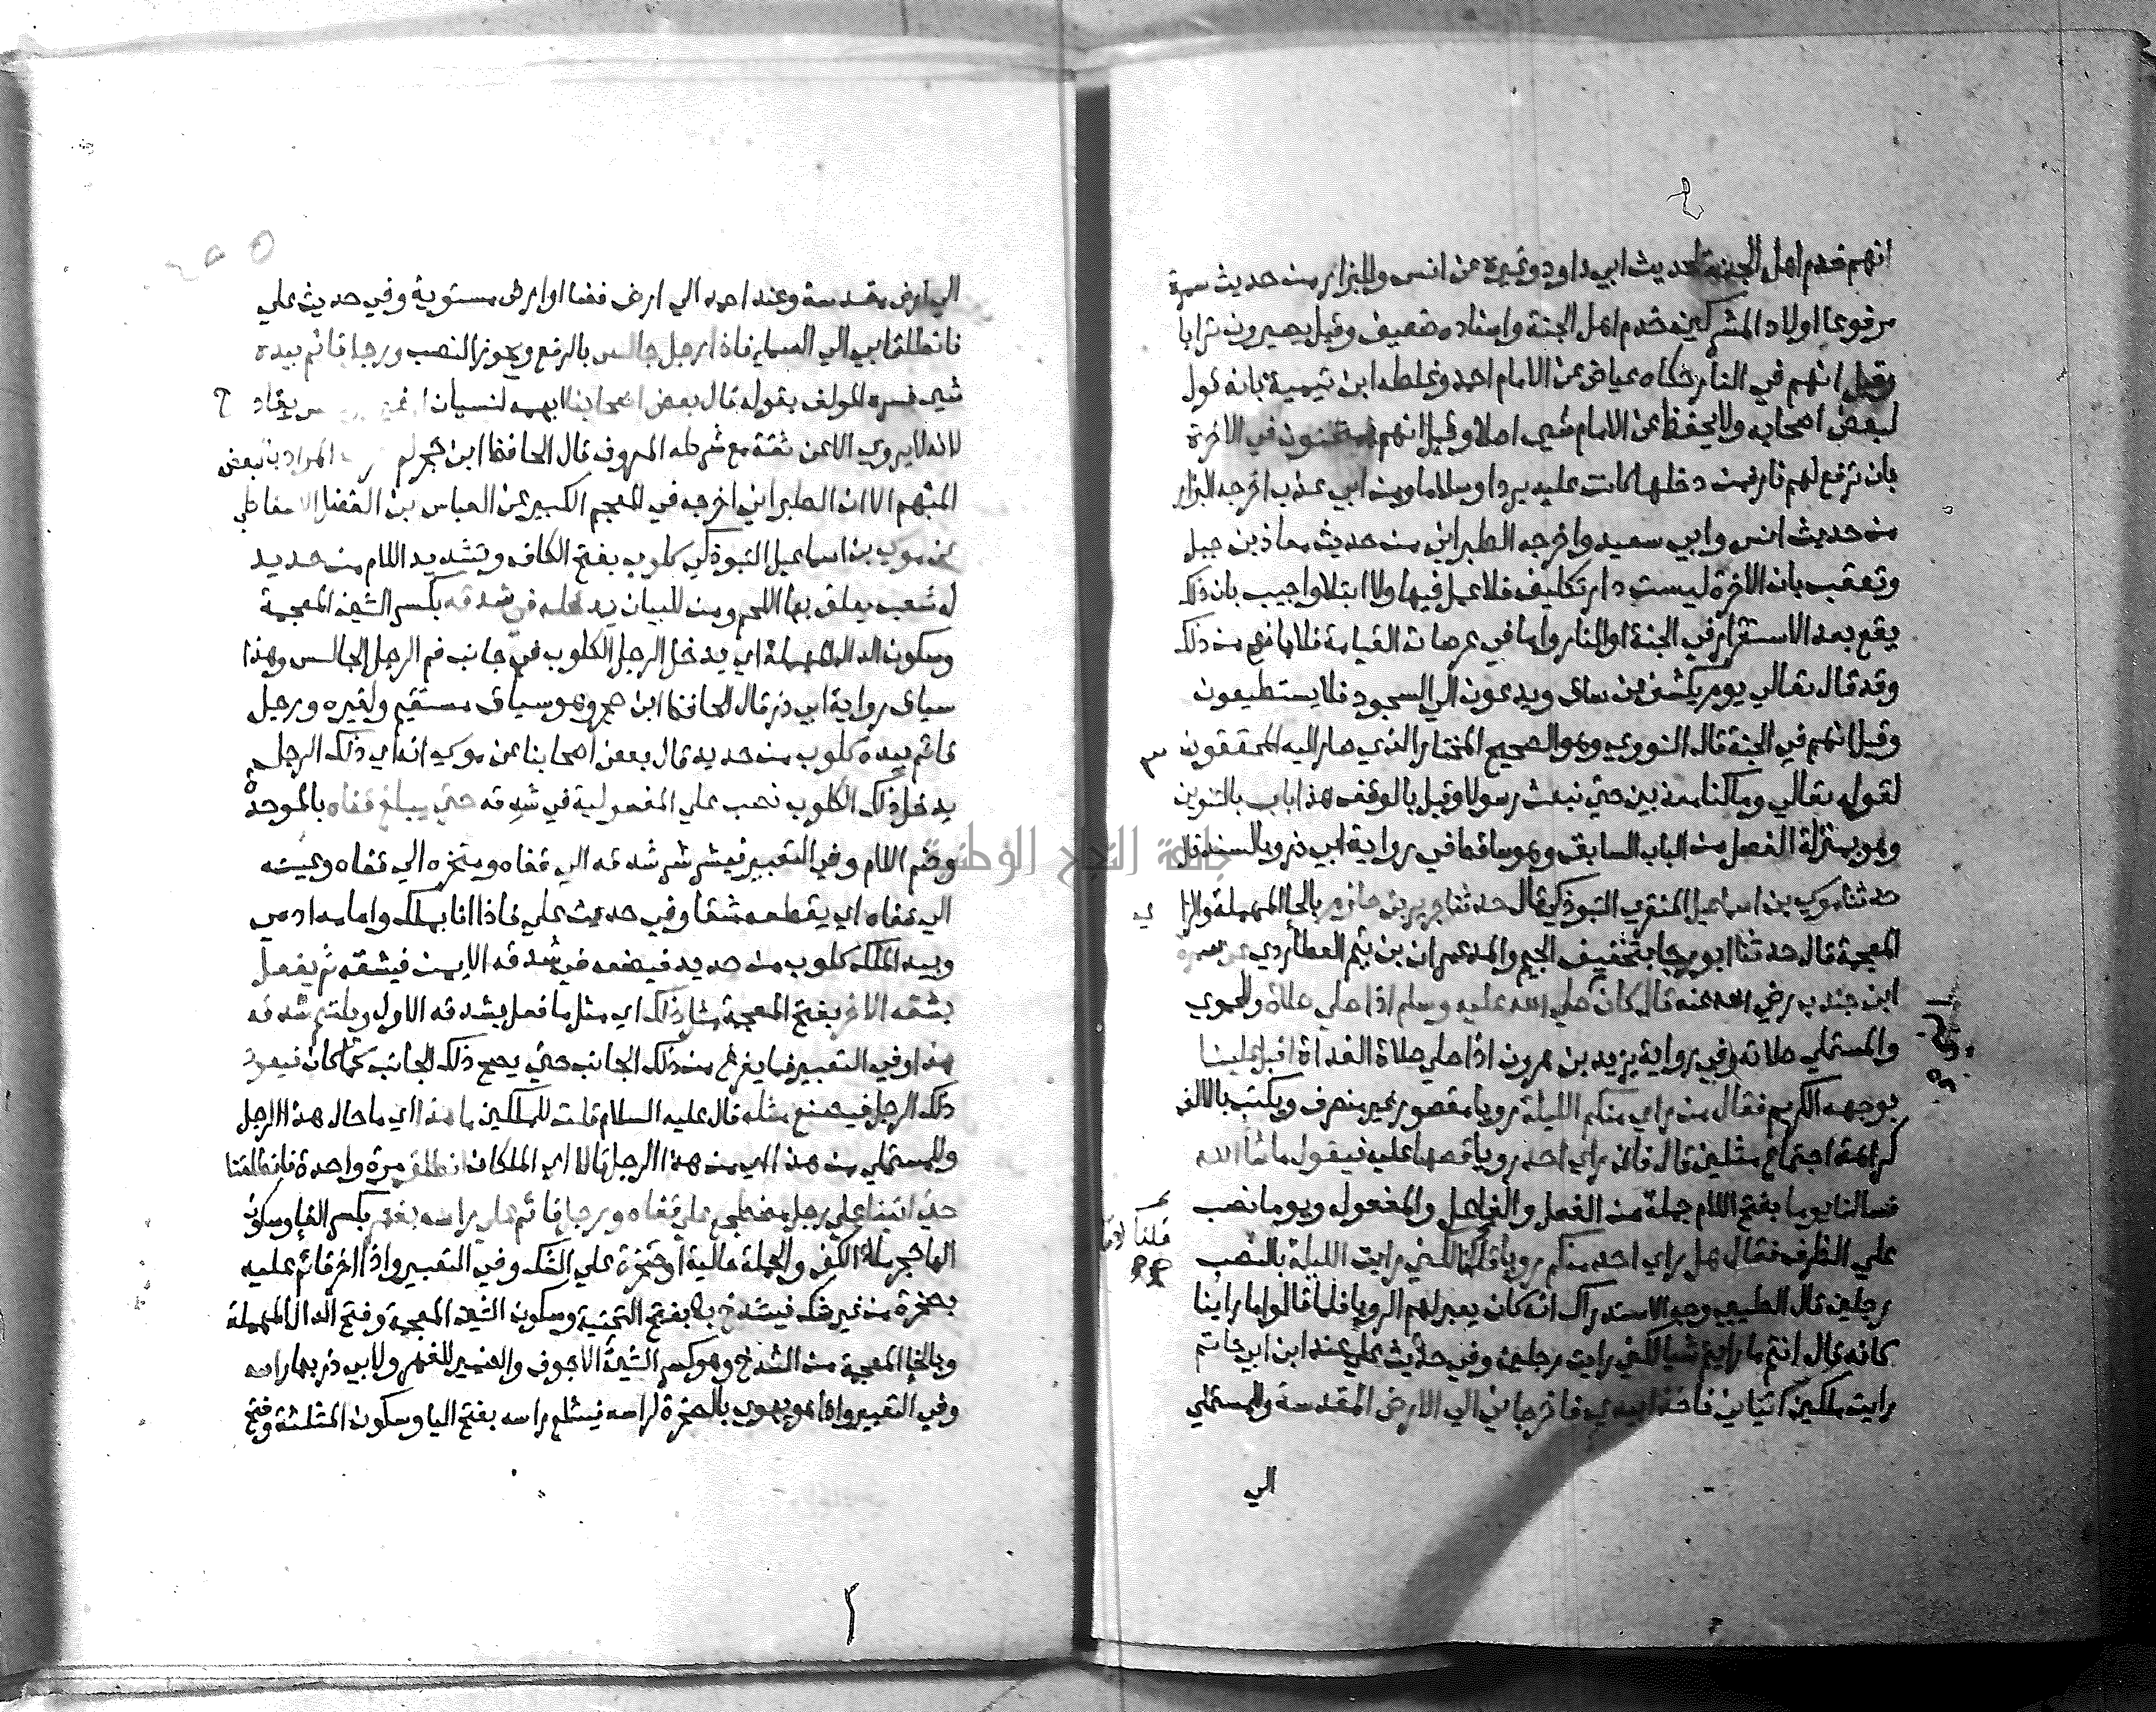 انهم خدم اهل الجنة لحديث ابي داود وغيره عن انس والبزار من حديث سمرة
مرفوعا اولاد المشركين خدم اهل الجنة واسناده ضعيف وقيل يصيرون ترابا
وقيل انهم في النار حكاه عياض عن الامام احمد وغلطه ابن تيمية بانه قول
لبعض اصحابه ولا يحفظ عن الامام شي اصلا وقيل انهم يمتحنون في الاخرة
بان ترفع لهم نار فمن دخلها كانت عليه بردا وسلاما ومن ابي عذب اخرجه البزار
من حديث انس وابي سعيد واخرجه الطبراني من حديث معاذ بن جبل
وتعقب بان الاخرة ليست دار تكليف فلا عمل فيها ولا ابتلا واجيب بان ذلك
يقع بعد الاستقرار في الجنة او النار واما في عرصات القيامة فلا مانع من ذلك
وقد قال تعالي يوم يكشف عن ساق ويدعون الي السجود فلا يستطيعون
وقيل انهم في الجنة قال النووي وهو الصحيح المختار الذي صار اليه المحققون
لقوله تعالي وما كنا معذبين حتي نبعث رسولا وقيل بالوقف هذا باب بالتنوين
وهو بمنزلة الفصل من الباب السابق وهو ساقط في رواية ابي ذر وبالسند قال
حدثنا موسي بن اسماعيل المنقري التبوذكي قال حدثنا جرير بن حازم بالحا المهملة والزا
ي
المعجمة قال حدثنا ابو رجا بتخفيف الجيم والمد عمران بن تيم العطاردي عن سمرة
ابن جندب رضي الله عنه قال كان صلي الله عليه وسلم اذا صلي صلاة وللحموي
والمستملي صلاته وفي رواية يزيد بن هرون اذا صلي صلاة الغداة اقبل علينا
بوجهه الكريم فقال من راي منكم الليلة رويا مقصور غير منصرف ويكتب بالالف
كراهة اجتماع مثلين قال فان راي احد رويا قصها عليه فيقول ما شا الله
فسالنا يوما بفتح اللام جملة من الفعل والفاعل والمفعول ويوما نصب
علي الظرف فقال هل راي احد منكم رويا قلنا لا قال لكني رايت الليلة بالنصب
قلنا لا
رجلين قال الطيبي وجه الاستدراك انه كان يعبر لهم الرويا فلما قالوا ما راينا
كانه قال انتم ما رايتم شيا لكني رايت رجلين وفي حديث علي عند ابن ابي حاتم
رايت ملكين اتياني فاخذا بيدي فاخرجاني الي الارض المقدسة وللمستملي
الي
الي ارض مقدسة وعند احمد الي ارض فضا او ارض مستوية وفي حديث علي
فانطلقا بي الي السماء فاذا رجل جالس بالرفع ويجوز النصب ورجل قائم بيده
شي فسره المولف بقوله قال بعض اصحابنا ابهمه لنسيان او غيره وليس بقادح
لانه لا يروي الا عن ثقة مع شرطه المعروف قال الحافظ ابن حجر لم المراد بالبعض
المبهم الا ان الطبراني اخرجه في المعجم الكبير عن العباس بن الفضل الاسفاطي
عن موسي بن اسماعيل التبوذكي كلوب بفتح الكاف وتشديد اللام من حديد
له شعب يعلق بها اللحم ومن للبيان يدخله في شدقه بكسر الشين المعجمة
وسكون الدال المهملة اي يدخل الرجل الكلوب في جانب فم الرجل الجالس وهذا
سياق رواية ابي ذر قال الحافظ ابن حجر وهو سياق مستقيم ولغيره ورجل
قائم بيده كلوب من حديد قال بعض اصحابنا عن موسي انه اي ذلك الرجل
يدخل ذلك الكلوب نصب علي المفعولية في شدقه حتي يبلغ قفاه بالموحدة
وضم اللام وفي التعبير فيشرشر شدقه الي قفاه ومنخره الي قفاه وعينه
الي قفاه اي يقطعه شقا وفي حديث علي فاذا انا بملك وامامه ادمي
وبيد الملك كلوب من حديد فيضعه في شدقه الايمن فيشقه ثم يفعل
بشدقه الاخر بفتح المعجمة مثل ذلك اي مثل ما فعل بشدقه الاول ويلتئم شدقه
هذا وفي التعبير فما يفرغ من ذلك الجانب حتي يصح ذلك الجانب كما كان فيعود
ذلك الرجل فيصنع مثله قال عليه السلام قلت للملكين ما هذا اي ما حال هذا الرجل
وللمستملي من هذا اي من هذا الرجل قالا اي الملكان انطلق مرة واحدة فانطلقنا
حتي اتينا علي رجل مضطجع علي قفاه ورجل قائم علي راسه بفهر بكسر الفا وسكون
الها حجر ملا الكف والجملة حالية او صخرة علي الشك وفي التعبير واذا اخر قائم عليه
بصخرة من غير شك فيشدخ به بفتح التحتية وسكون الشين المعجمة وفتح الدال المهملة
وبالخا المعجمة من الشدخ وهو كسر الشي الاجوف والضمير للفهر ولابي ذر بها راسه
وفي التعبير واذا هو يهوي بالصخرة لراسه فيثلغ راسه بفتح اليا وسكون المثلثة وفتح
جامعة النجاح الوطنية